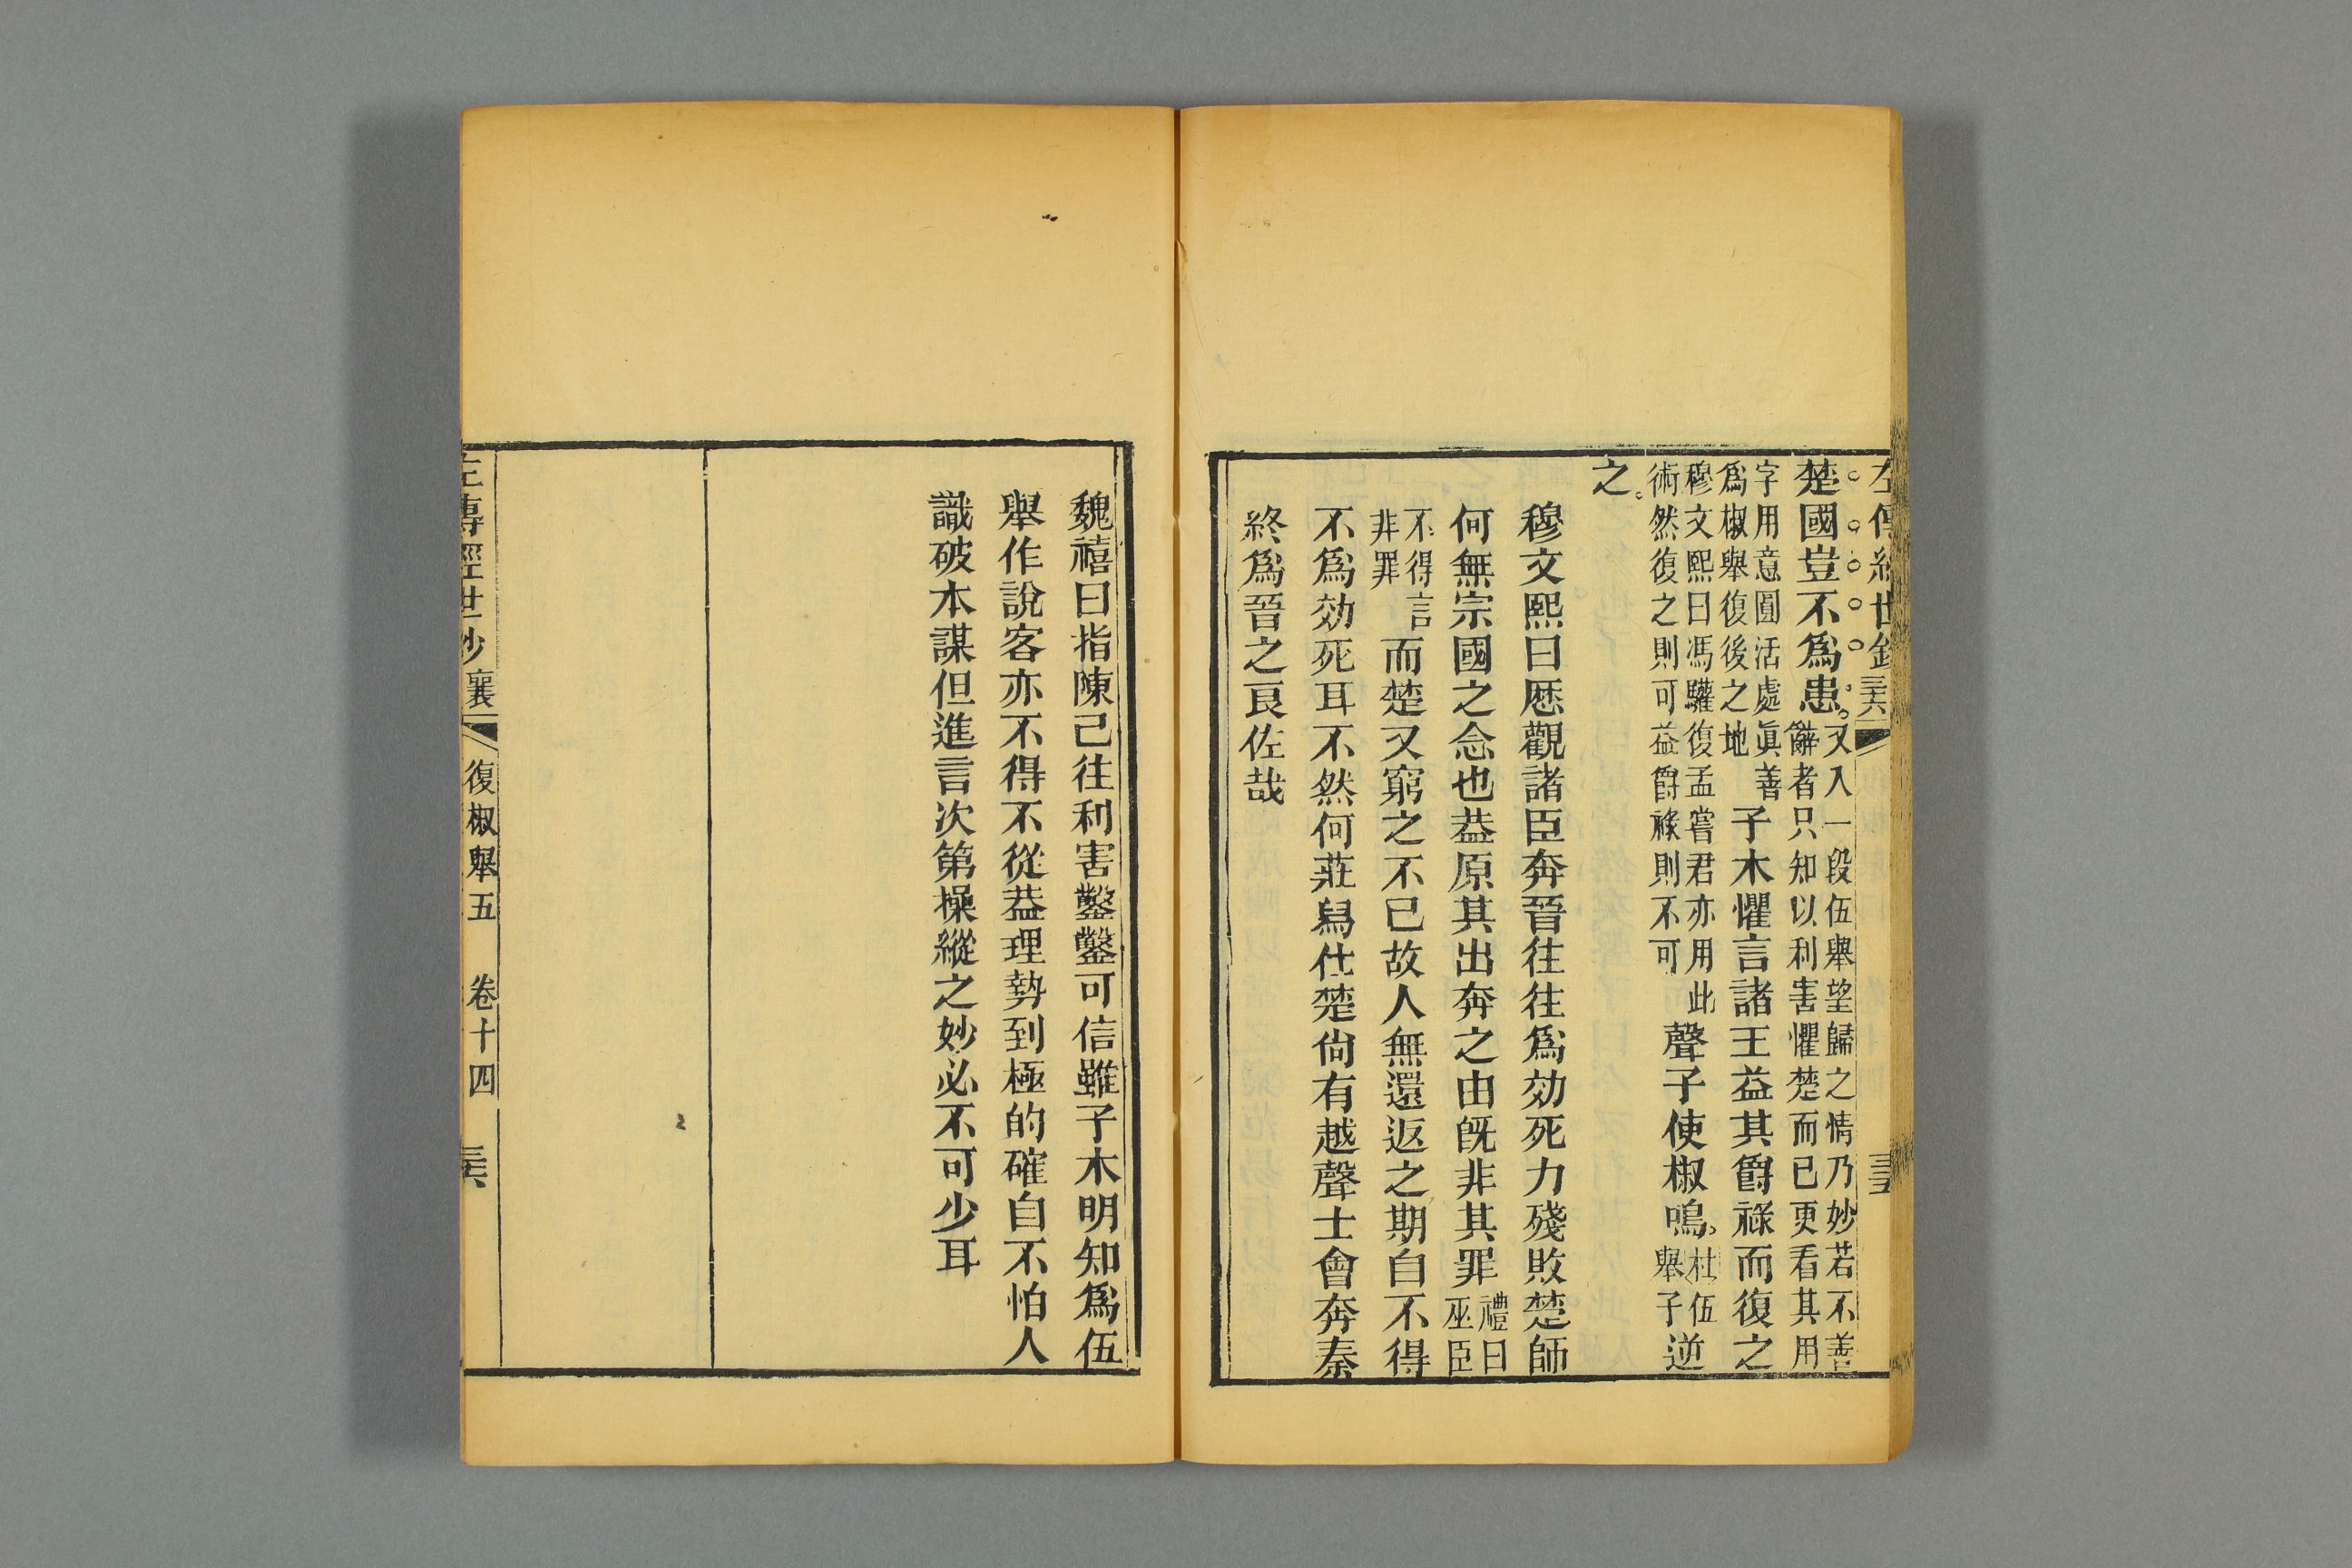 左傳經世鈔
楚國豈不爲患。又入一段伍舉望歸之情乃妙若不善
辭者只知以利害懼楚而已更看其用
字用意圓活處眞善
爲椒舉復後之地
子木懼言諸王益其爵祿而復之
穆文熙曰馮驩復孟嘗君亦用此
術然復之則可益爵祿則不可
聲子使椒鳴。杜伍
舉子
逆
之。
穆文熙曰厯觀諸臣奔晉往往爲効死力殘敗楚師
何無宗國之念也葢原其出奔之由旣非其罪禮曰
巫臣
不得言
非罪
而楚又窮之不已故人無還返之期自不得
不爲効死耳不然何莊舄仕楚尙有越聲士會奔秦
終爲晉之良佐哉
魏禧曰指陳己往利害鑿鑿可信雖子木明知爲伍
舉作說客亦不得不從葢理勢到極的確自不怕人
識破本謀但進言次第操縱之妙必不可少耳
左傳經世鈔 襄 復椒舉五 卷十四